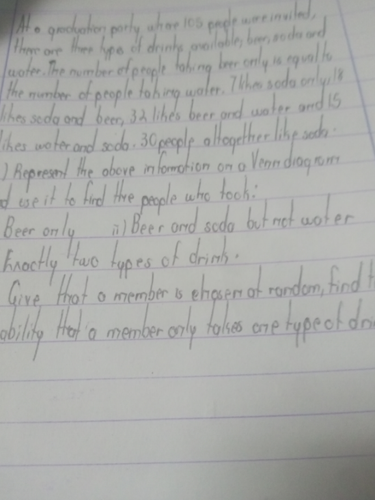 At a graduation party where 105 people were invited,
there are three type of drinks available; beer, soda and
water. The number of people taking beer only is equal to
the number of people taking water. 7 likes soda only, 18
likes soda and beer, 32 likes beer and water and 15
likes water and soda. 30 people altogether like soda.
) Represent the above information on a Venn diagram
d use it to find the people who took:
Beer only ii) Beer and soda but not water
Exactly two types of drink.
Give that a member is chosen at random, find t
ability that a member only takes one type of dri